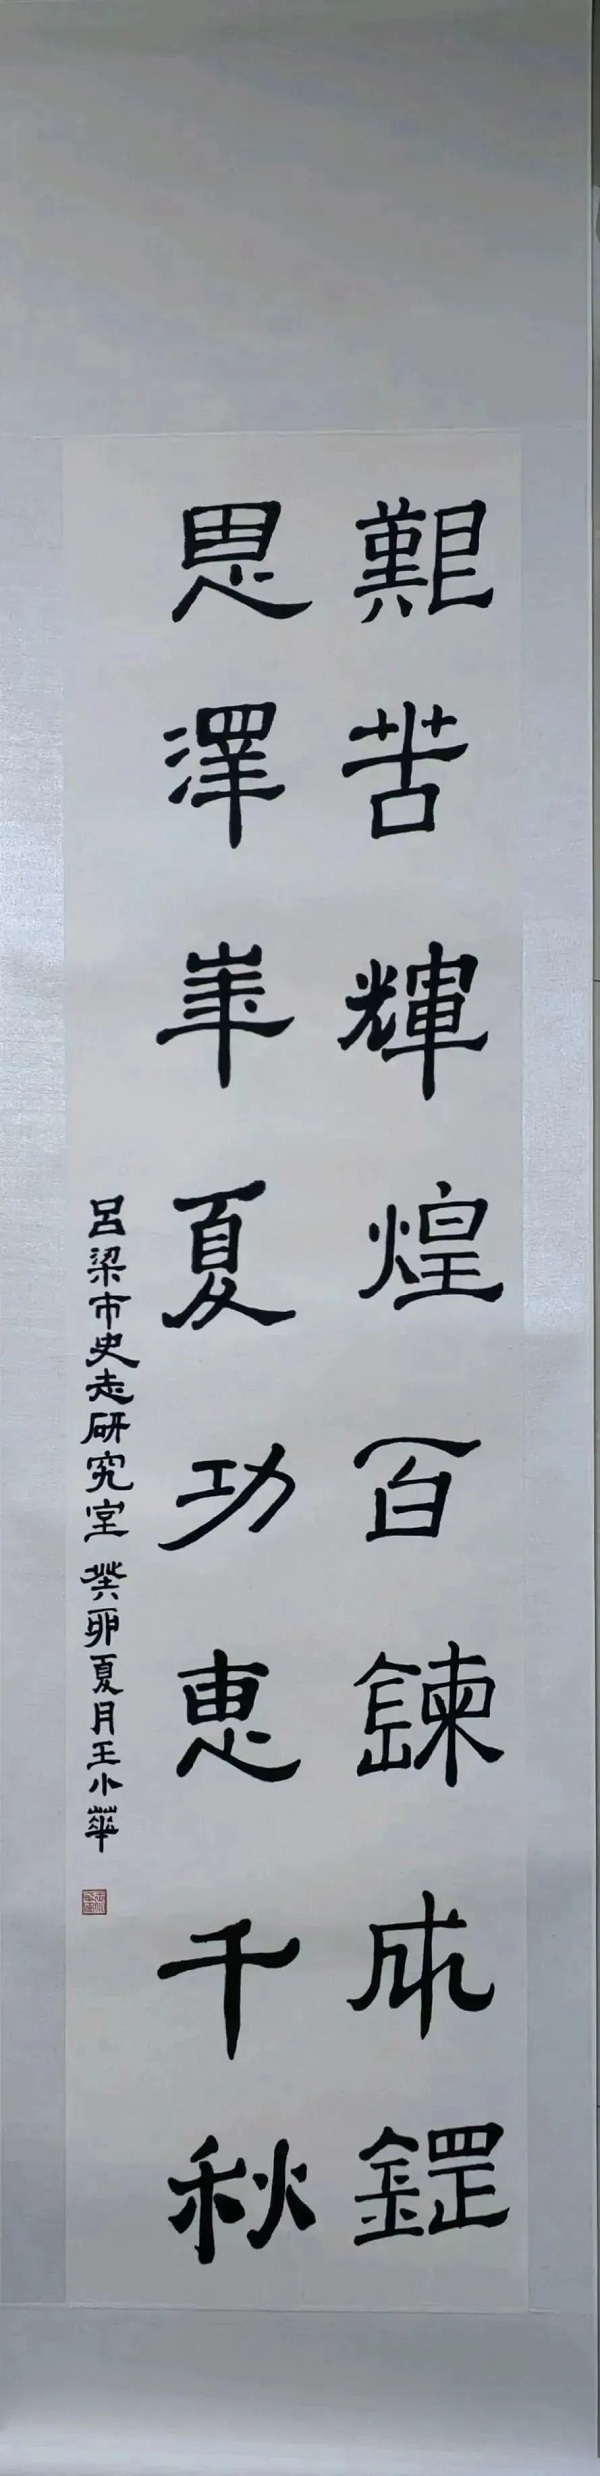 艱苦輝煌百鍊成鋼
恩澤華夏功惠千秋
呂梁市史志研究室 癸卯夏月王小華